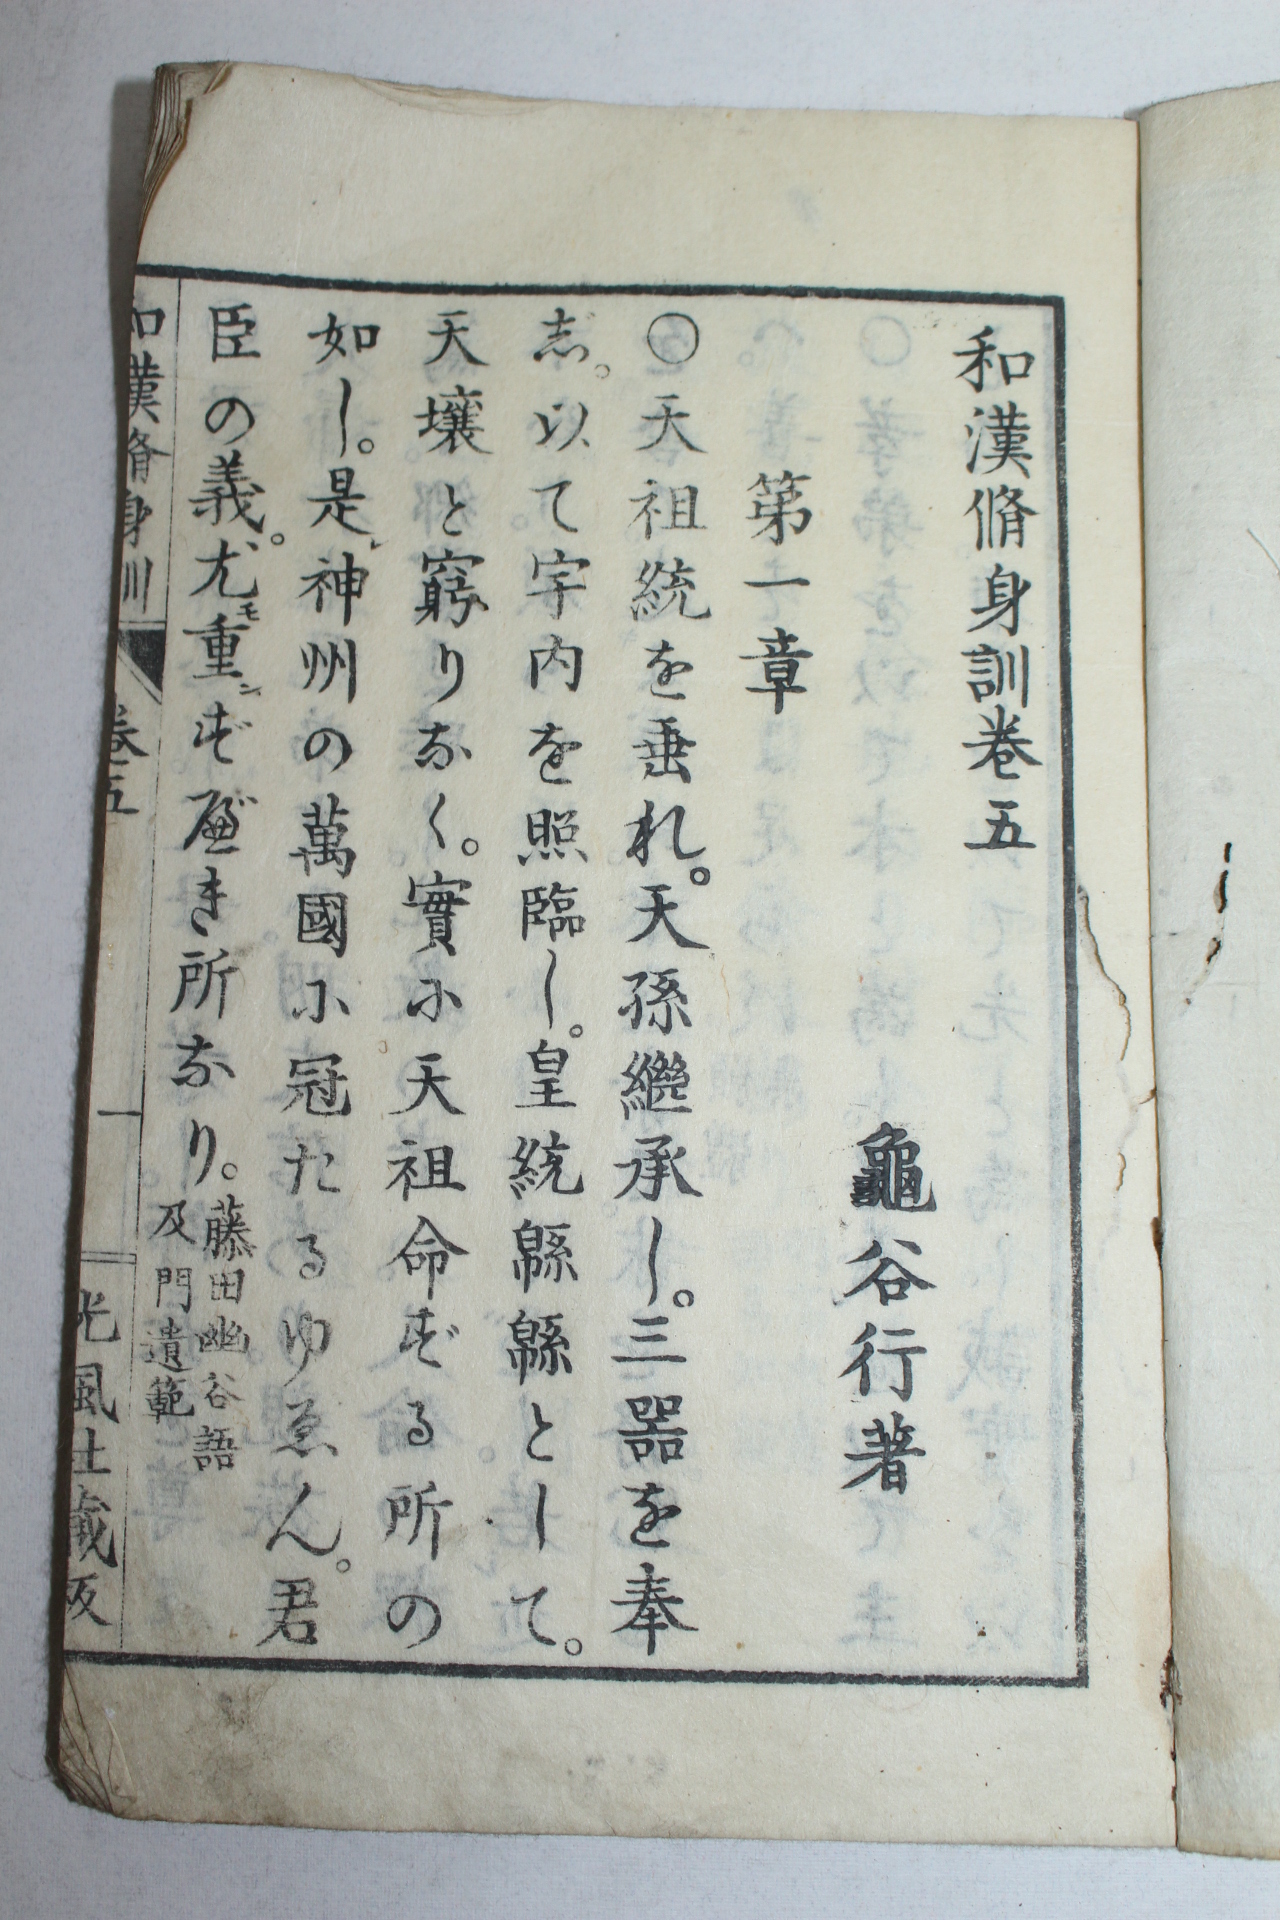 和漢脩身訓卷五
龜谷行著
第一章
〇天祖統を垂れ。天孫繼承し。三器を奉
じ。以て宇内を照臨し。皇統緜緜として。
天壤と窮りなく。實に天祖命ずる所の
如し。是神州の萬國に冠たるゆゑん。君
臣の義。尤モ重ンずべき所なり。藤田幽谷語
及門遺範
和漢脩身訓 卷五 一 光風社藏版